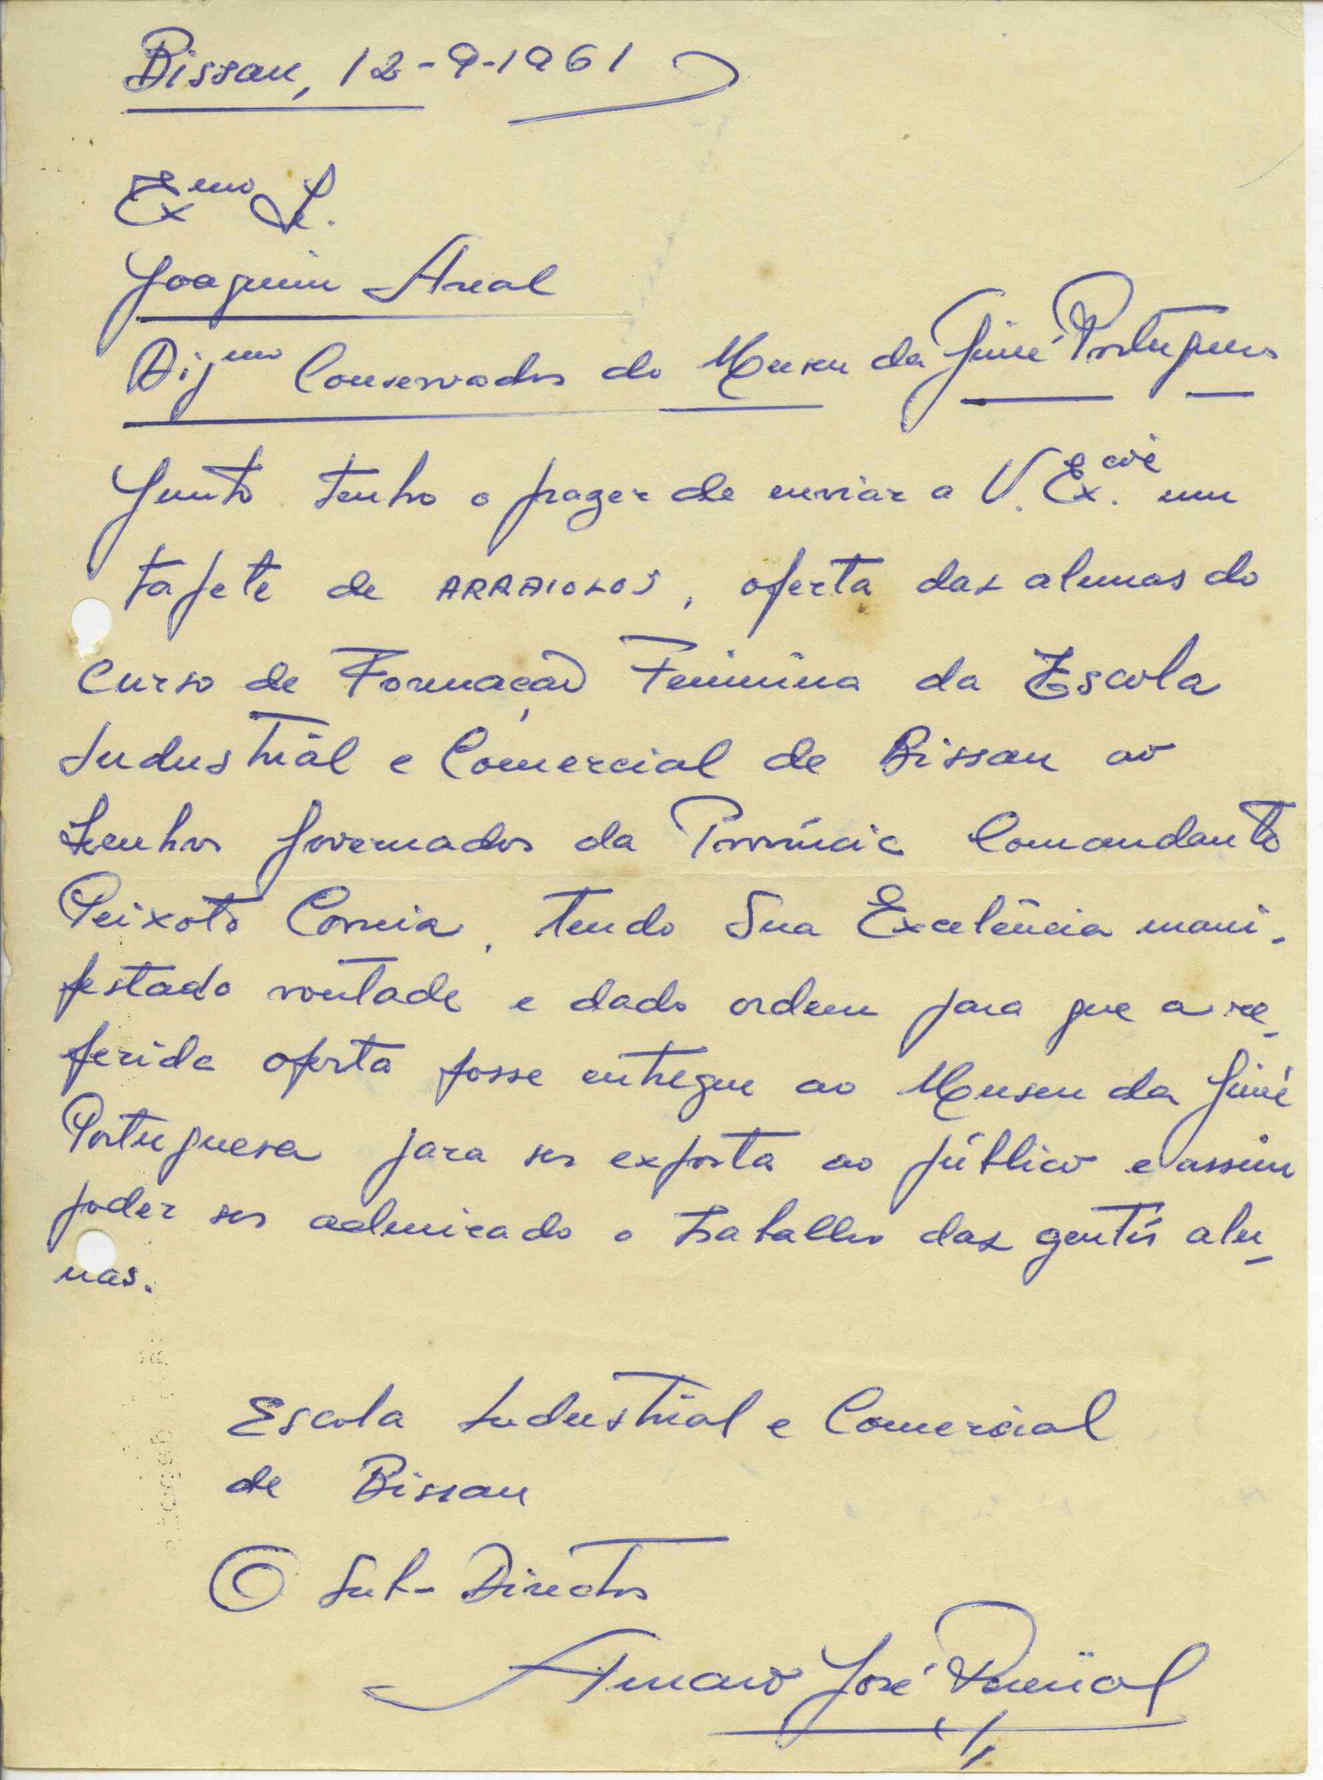 Bissau, 12-9-1961
Exmo Sr.
Joaquim Areal
Digmo Conservador do Museu da Guiné Portuguesa
Junto tenho o prazer de enviar a V. Ex.cia um
tapete de ARRAIOLOS, oferta das alunas do
Curso de Formação Feminina da Escola
Industrial e Comercial de Bissau ao
Senhor Governador da Província Comandante
Peixoto Correia, tendo Sua Excelência mani-
festado vontade e dado ordem para que a re-
ferida oferta fosse entregue ao Museu da Guiné
Portuguesa para ser exposta ao público e assim
poder ser admirado o trabalho das gentis alu-
nas.
Escola Industrial e Comercial
de Bissau
O Sub-Director
Amaro José